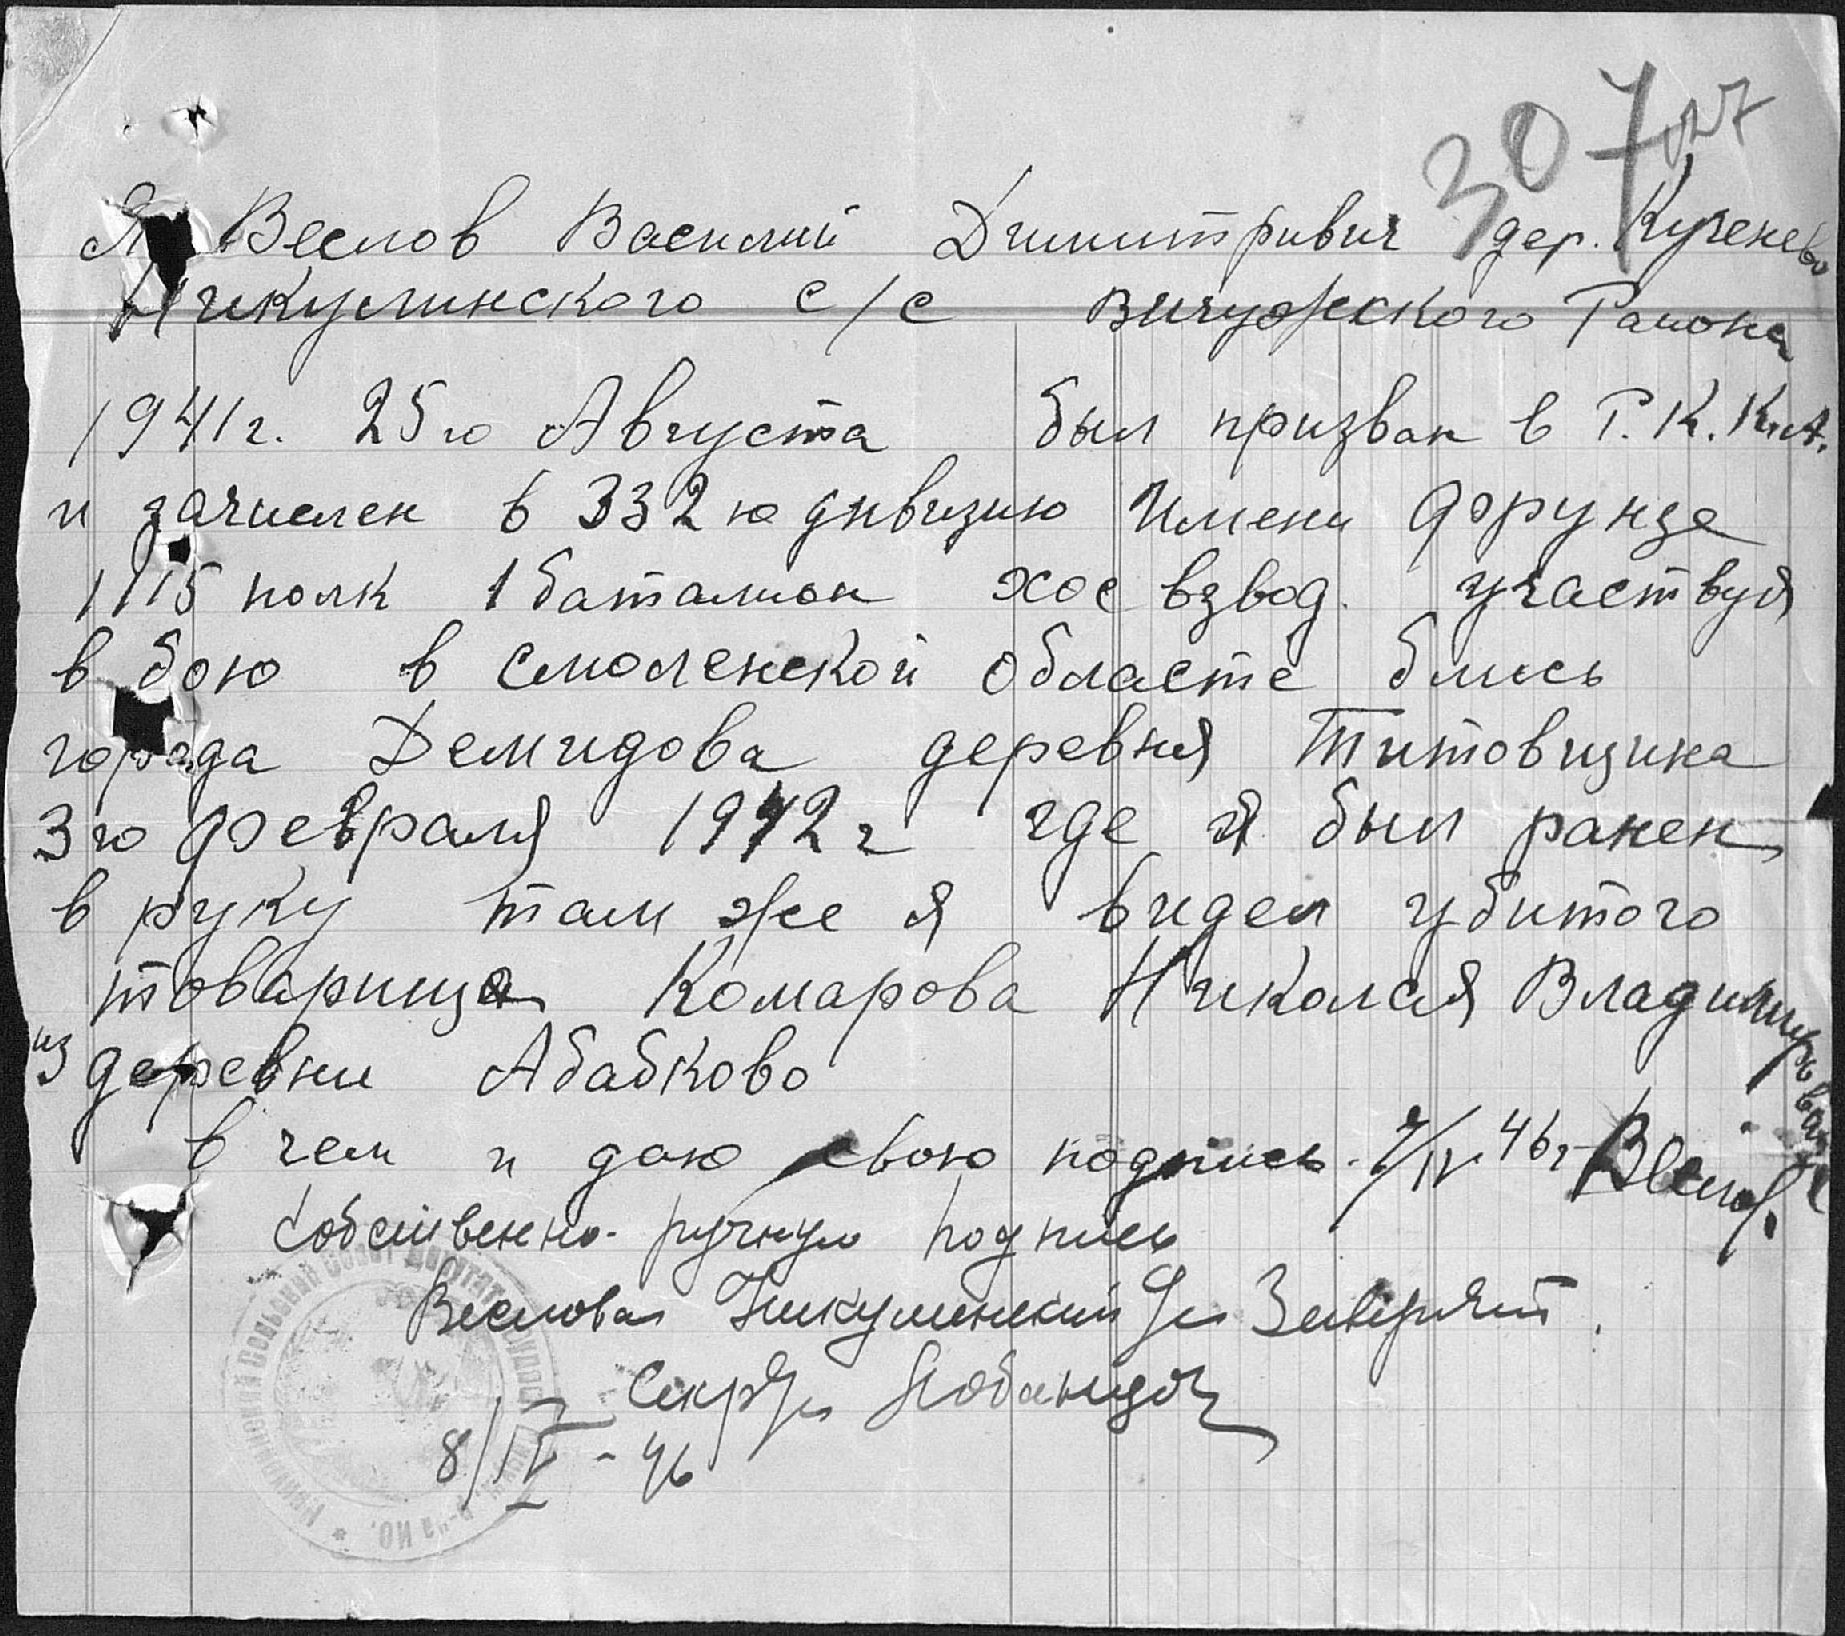 307
27
Я Веслов Василий Димитривич дер. Кученево
Никулинского с/с Вичужского Района
1941г. 25го Августа был призван в Р.К.К.А.
и зачислен в 332ю дивизию Имени Фрунзе
1115 полк 1 баталион хос взвод. участвуя
в бою в смоленской области блись
города Демидова деревня Титовщина
3го февраля 1942г где я был ранен
в руку там же я видел убитого
товарища Комарова Николая Владимировича
из деревни Абабково
в чем и даю свою подпись. 7/IV 46г Веслов.
Собственно-ручную подпись
Веслова Никулинский с/с Заверяет.
Секр с/с
8/IV - 46